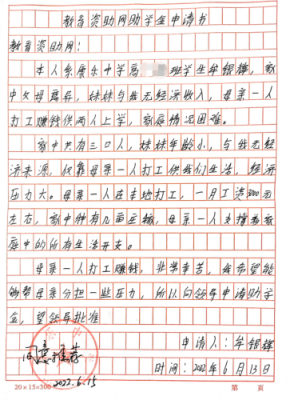 教育资助网助学生申请书
教育资助网：
本人系康乐中学高 班学生牟银辉，家
中父母离异，妹妹与我无经济收入，母亲一人
打工赚钱供两人上学，家庭情况困难。
家中共有三口人，妹妹年龄小，与我无经
济来源，仅靠母亲一人打工供我们生活，经济
压力大。母亲一人在本地打工，一月工资 元
左右，家中种有几亩玉米，母亲一人支撑着家
庭中的所有生活开支。
母亲一人打工赚钱，非常辛苦，我希望能
够帮母亲分担一些压力，所以向领导申请助学
金，望领导批准
申请人：牟银辉
时间：2022年6月13日
同意推荐
2022.6.15
20×15=300
第 页